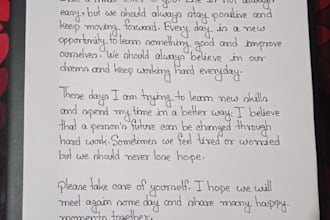 easy. but we should always stay positive and
keep moving forward. Every day is a new
opportunity to learn something good and improve
ourselves. We should always believe in our
dream and keep working hard everyday.
These days I am trying to learn new skills
and spend my time in a better way. I believe
that a person's future can be changed through
hard work. Sometimes we feel tired or worried
but we should never lose hope.
please take care of yourself. I hope we will
meet again some day and share many happy
moments together.